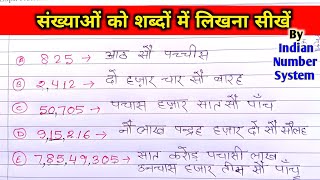 संख्याओं को शब्दों में लिखना सीखें
By
Indian
Number
System
A 825 → आठ सौ पच्चीस
B 2,412 → दो हज़ार चार सौ बारह
C 50,705 → पचास हज़ार सात सौ पाँच
D 9,15,216 → नौ लाख पन्द्रह हज़ार दो सौ सौलह
E 7,85,49,305 → सात करोड़ पचासी लाख
उनन्चास हज़ार तीन सौ पाँच